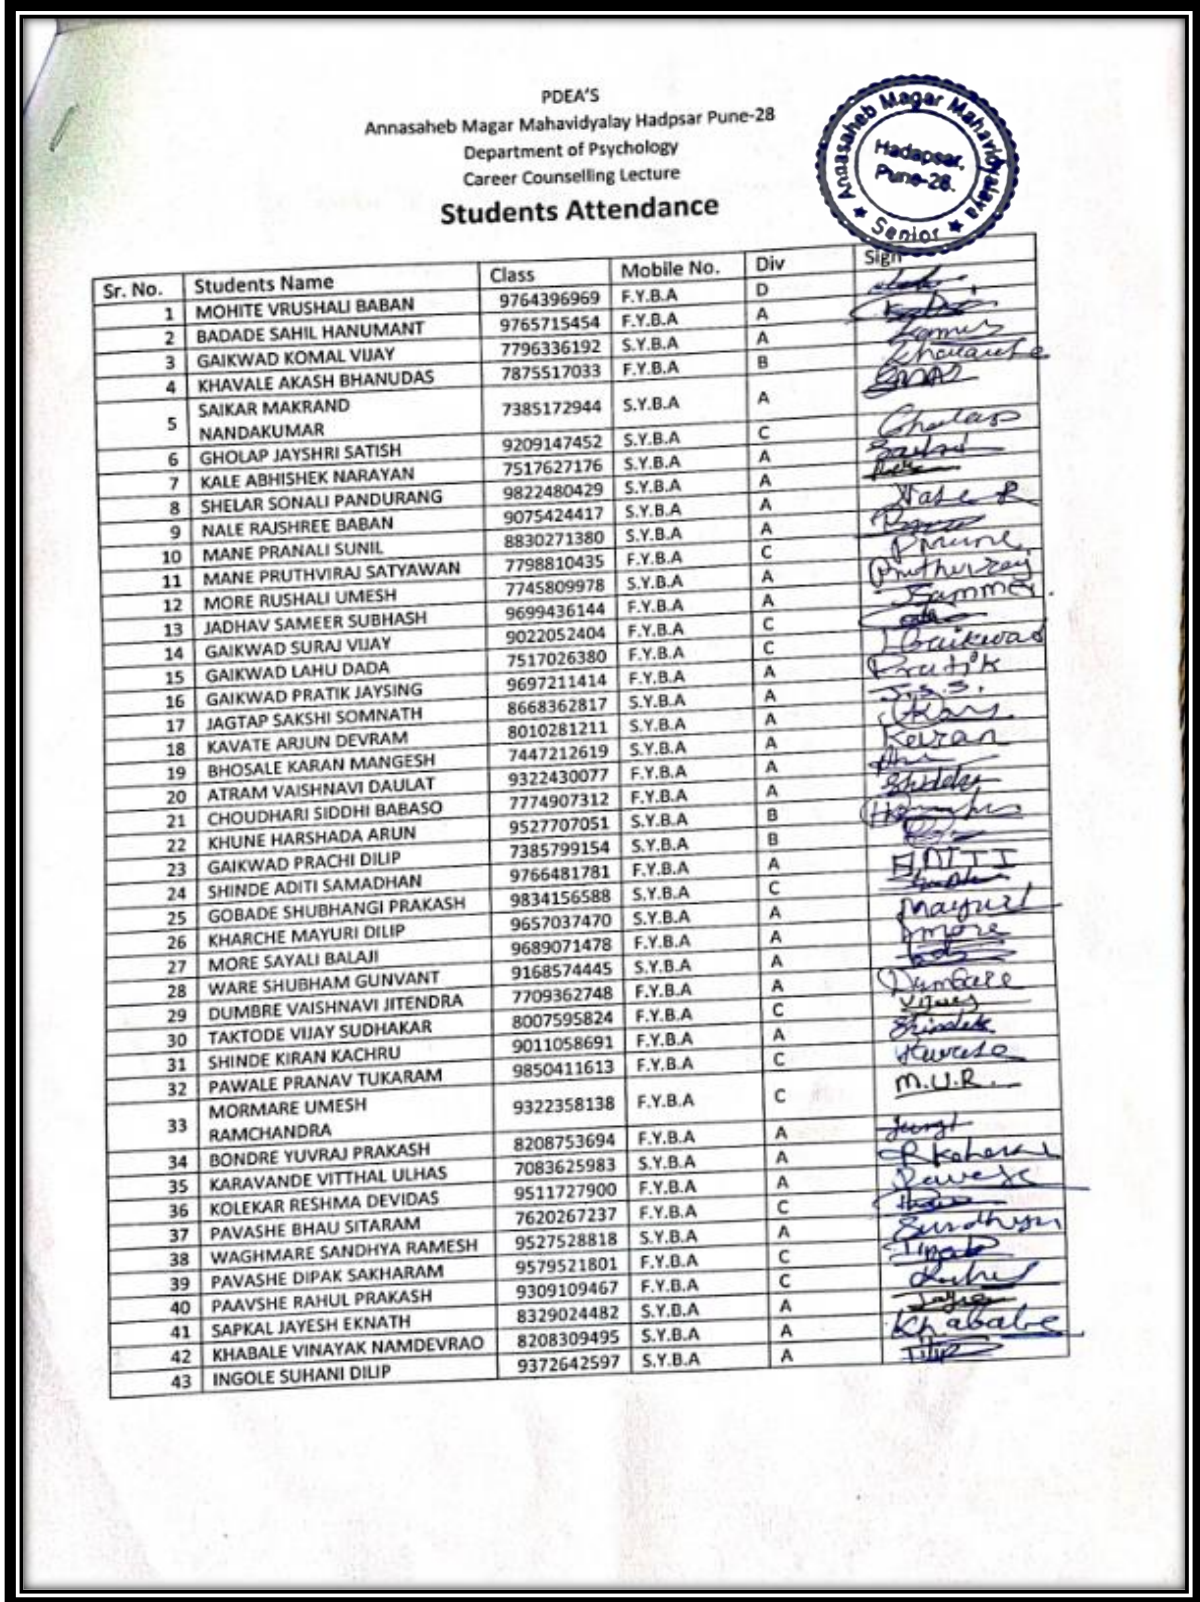 PDEA'S
Annasaheb Magar Mahavidyalay Hadpsar Pune-28
Department of Psychology
Career Counselling Lecture
Students Attendance
Annasaheb Magar Mahavidyalaya
Hadapsar,
Pune-28.
★ Senior ★
Sr. No. Students Name Class Mobile No. Div Sign
1 MOHITE VRUSHALI BABAN 9764396969 F.Y.B.A D
2 BADADE SAHIL HANUMANT 9765715454 F.Y.B.A A
3 GAIKWAD KOMAL VIJAY 7796336192 S.Y.B.A A
4 KHAVALE AKASH BHANUDAS 7875517033 F.Y.B.A B
5 SAIKAR MAKRAND 7385172944 S.Y.B.A A
NANDAKUMAR
6 GHOLAP JAYSHRI SATISH 9209147452 S.Y.B.A C Gholap
7 KALE ABHISHEK NARAYAN 7517627176 S.Y.B.A A
8 SHELAR SONALI PANDURANG 9822480429 S.Y.B.A A
9 NALE RAJSHREE BABAN 9075424417 S.Y.B.A A
10 MANE PRANALI SUNIL 8830271380 S.Y.B.A A
11 MANE PRUTHVIRAJ SATYAWAN 7798810435 F.Y.B.A C
12 MORE RUSHALI UMESH 7745809978 S.Y.B.A A
13 JADHAV SAMEER SUBHASH 9699436144 F.Y.B.A A
14 GAIKWAD SURAJ VIJAY 9022052404 F.Y.B.A C
15 GAIKWAD LAHU DADA 7517026380 F.Y.B.A C L Gaikwad
16 GAIKWAD PRATIK JAYSING 9697211414 F.Y.B.A A Pratik
17 JAGTAP SAKSHI SOMNATH 8668362817 S.Y.B.A A J.S.S.
18 KAVATE ARJUN DEVRAM 8010281211 S.Y.B.A A
19 BHOSALE KARAN MANGESH 7447212619 S.Y.B.A A Karan
20 ATRAM VAISHNAVI DAULAT 9322430077 F.Y.B.A A
21 CHOUDHARI SIDDHI BABASO 7774907312 F.Y.B.A A
22 KHUNE HARSHADA ARUN 9527707051 S.Y.B.A B
23 GAIKWAD PRACHI DILIP 7385799154 S.Y.B.A B
24 SHINDE ADITI SAMADHAN 9766481781 F.Y.B.A A ADITI
25 GOBADE SHUBHANGI PRAKASH 9834156588 S.Y.B.A C
26 KHARCHE MAYURI DILIP 9657037470 S.Y.B.A A Mayuri
27 MORE SAYALI BALAJI 9689071478 F.Y.B.A A more
28 WARE SHUBHAM GUNVANT 9168574445 S.Y.B.A A
29 DUMBRE VAISHNAVI JITENDRA 7709362748 F.Y.B.A A
30 TAKTODE VIJAY SUDHAKAR 8007595824 F.Y.B.A C
31 SHINDE KIRAN KACHRU 9011058691 F.Y.B.A A
32 PAWALE PRANAV TUKARAM 9850411613 F.Y.B.A C
33 MORMARE UMESH 9322358138 F.Y.B.A C M.U.R.
RAMCHANDRA
34 BONDRE YUVRAJ PRAKASH 8208753694 F.Y.B.A A
35 KARAVANDE VITTHAL ULHAS 7083625983 S.Y.B.A A
36 KOLEKAR RESHMA DEVIDAS 9511727900 F.Y.B.A A
37 PAVASHE BHAU SITARAM 7620267237 F.Y.B.A C
38 WAGHMARE SANDHYA RAMESH 9527528818 S.Y.B.A A
39 PAVASHE DIPAK SAKHARAM 9579521801 F.Y.B.A C
40 PAAVSHE RAHUL PRAKASH 9309109467 F.Y.B.A C
41 SAPKAL JAYESH EKNATH 8329024482 S.Y.B.A A
42 KHABALE VINAYAK NAMDEVRAO 8208309495 S.Y.B.A A Khabale
43 INGOLE SUHANI DILIP 9372642597 S.Y.B.A A